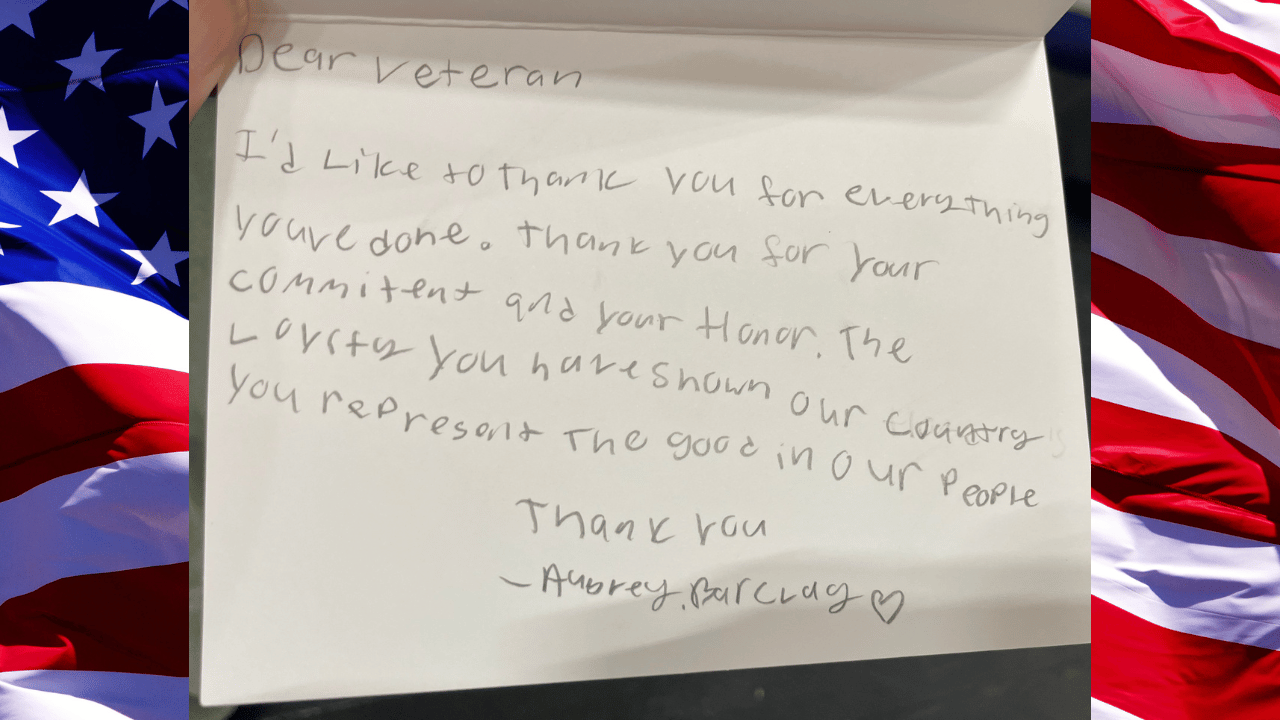 Dear veteran
I'd Like to thank you for everything
youve done. Thank you for your
commitent and your Honor. The
Loyalty you have shown our country
you represent the good in our people
Thank you
- Aubrey.Barclay ♡